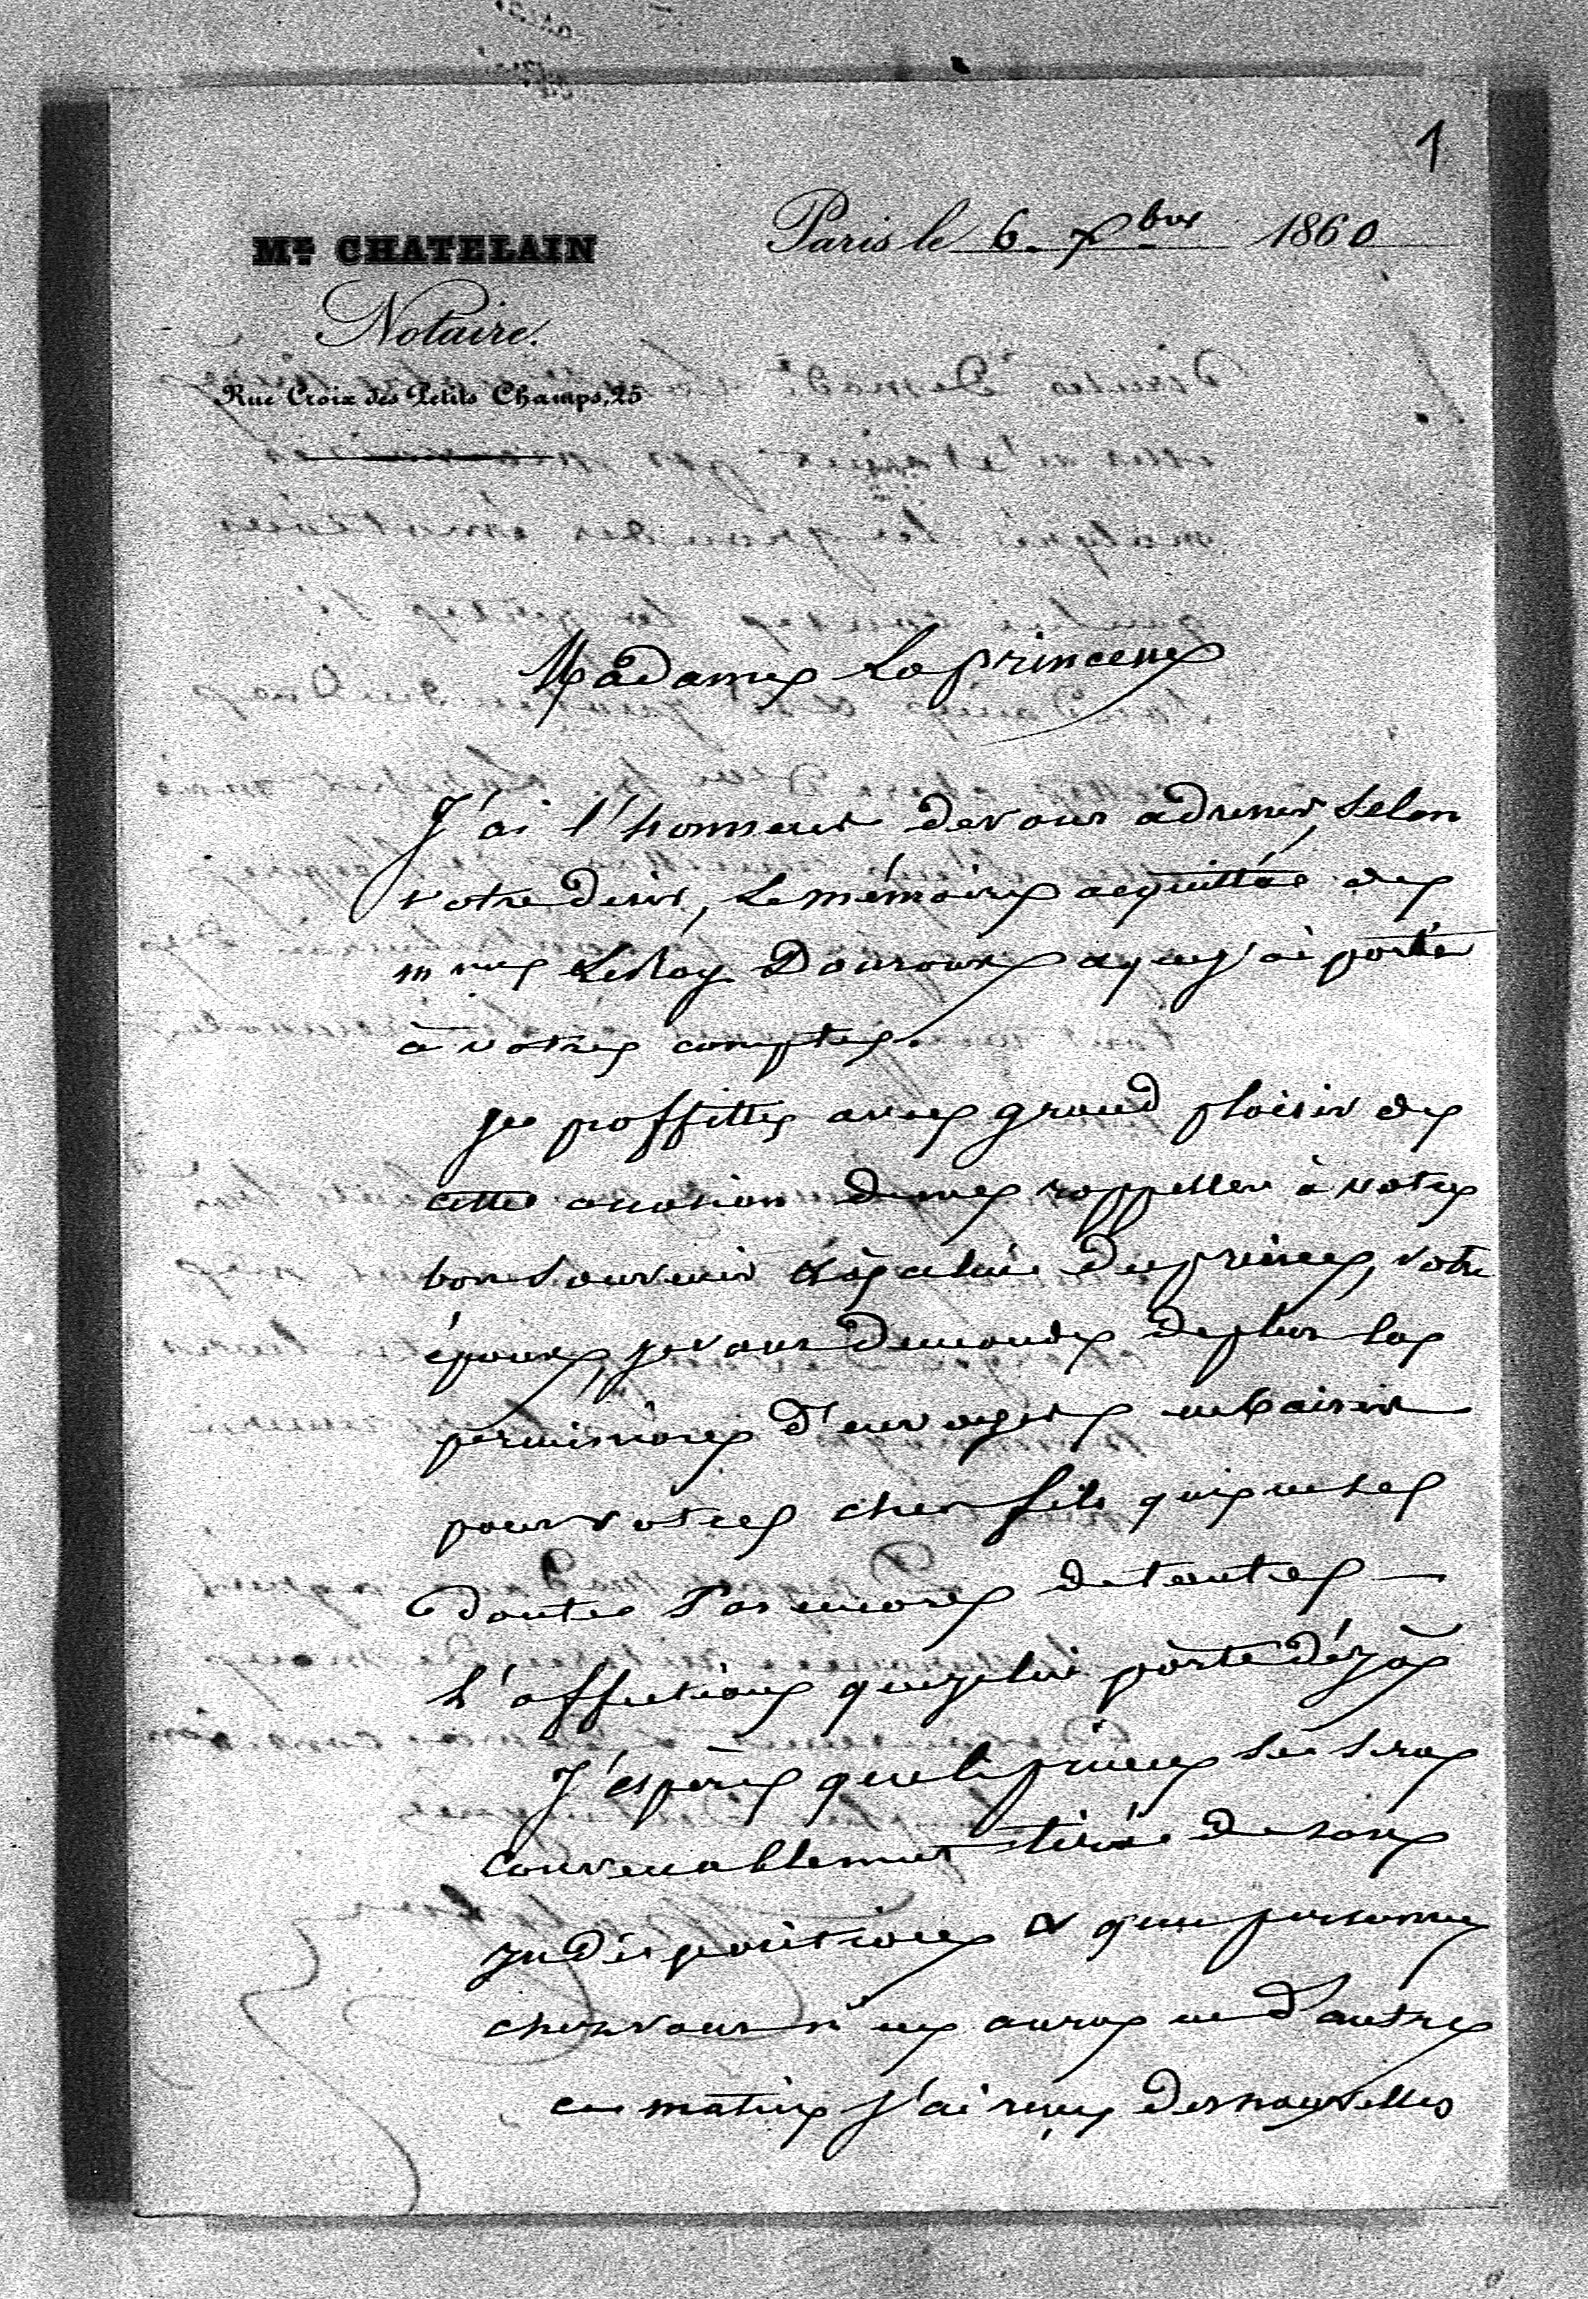 1
Mᵉ CHATELAIN
Paris le 6. Xbre 1860
Notaire.
Rue Croix des Petits Champs, 25
Madame La princesse
J'ai l'honneur de vous adresser, selon
votre désir, le mémoire acquitté de
Mme Leroy Douroux & que j'ai porté
à votre compte.
Je proffitte avec grand plaisir de
cette occasion de me rappeller à votre
bon souvenir & à celui du prince, votre
époux, je vous demande de plus la
permission d'envoyer un baiser
pour votre cher fils qui ne se
doute pas encore de toute
l'affection que je lui porte déjà
J'espère que le prince se sera
convenablement tiré de son
indisposition & que personne
chez vous n'en aura eu d'autre
ce matin j'ai reçu des nouvelles